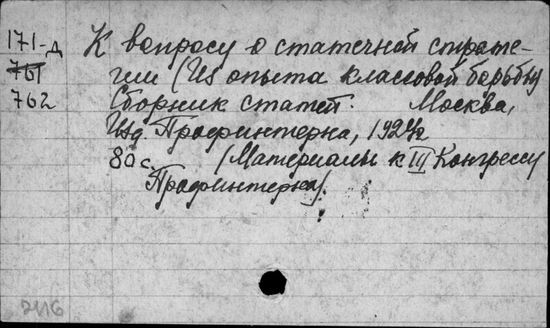 171-д К вопросу о стачечной страте-
761 гии (Из опыта классовой борьбы
762 Сборник статей. Москва,
Изд. Профинтерна, 1924г.
80 с. (Материалы к III Конгрессу
Профинтерна).
2416